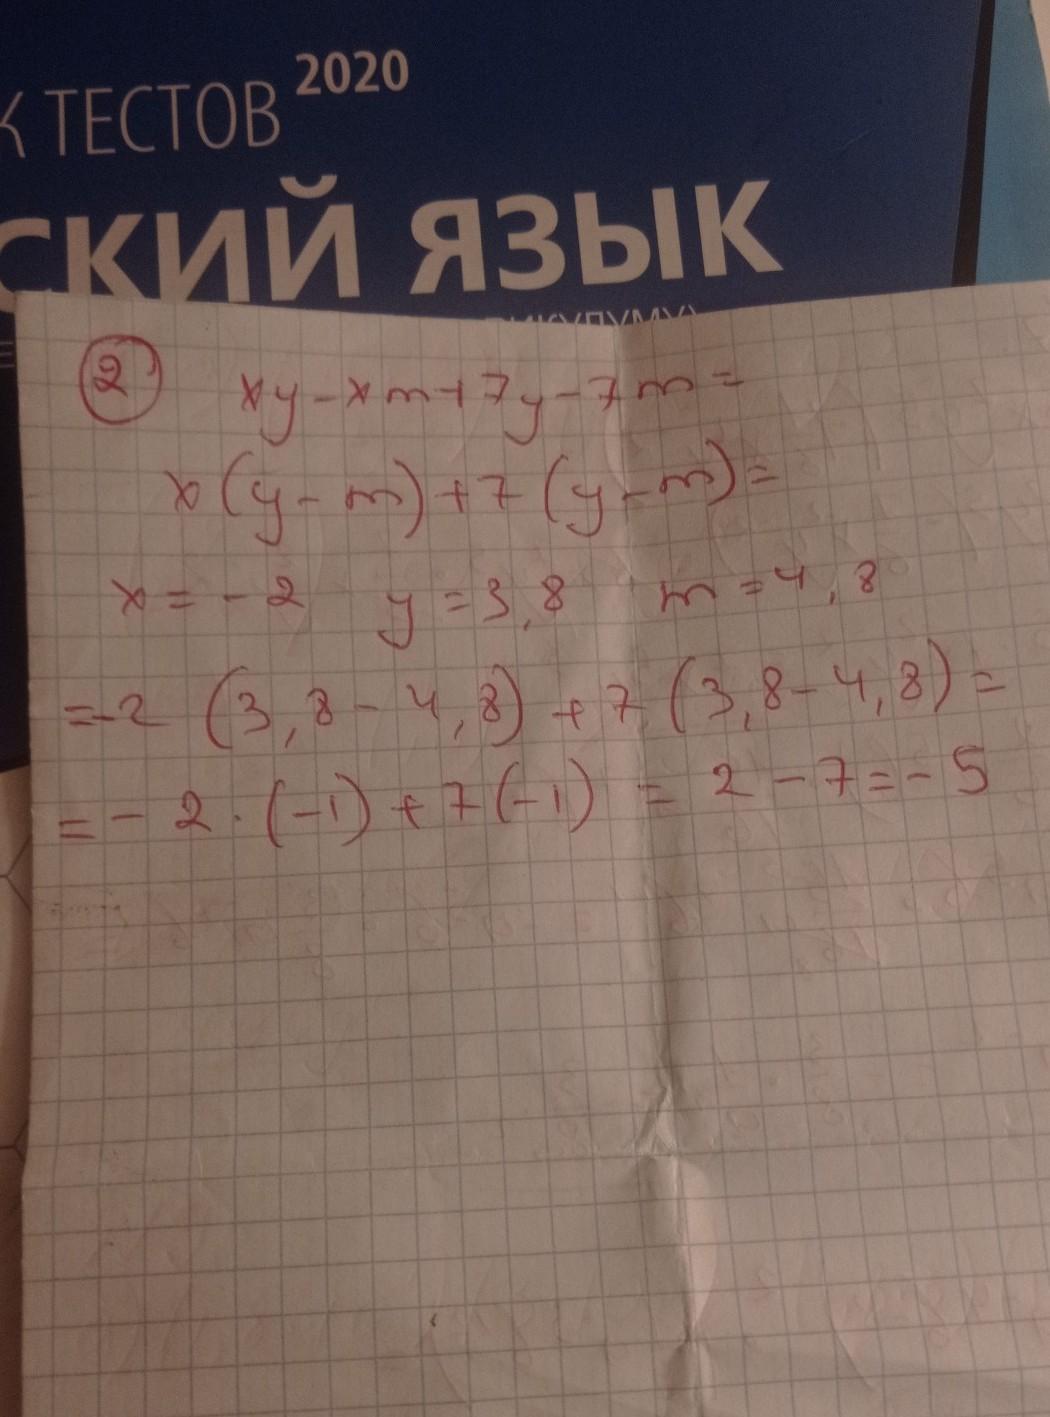 К ТЕСТОВ 2020
СКИЙ ЯЗЫК
2) xy-xm+7y-7m=
x(y-m)+7(y-m)=
x=-2 y=3,8 m=4,8
=-2 (3,8-4,8)+7(3,8-4,8)=
=-2·(-1)+7(-1)=2-7=-5